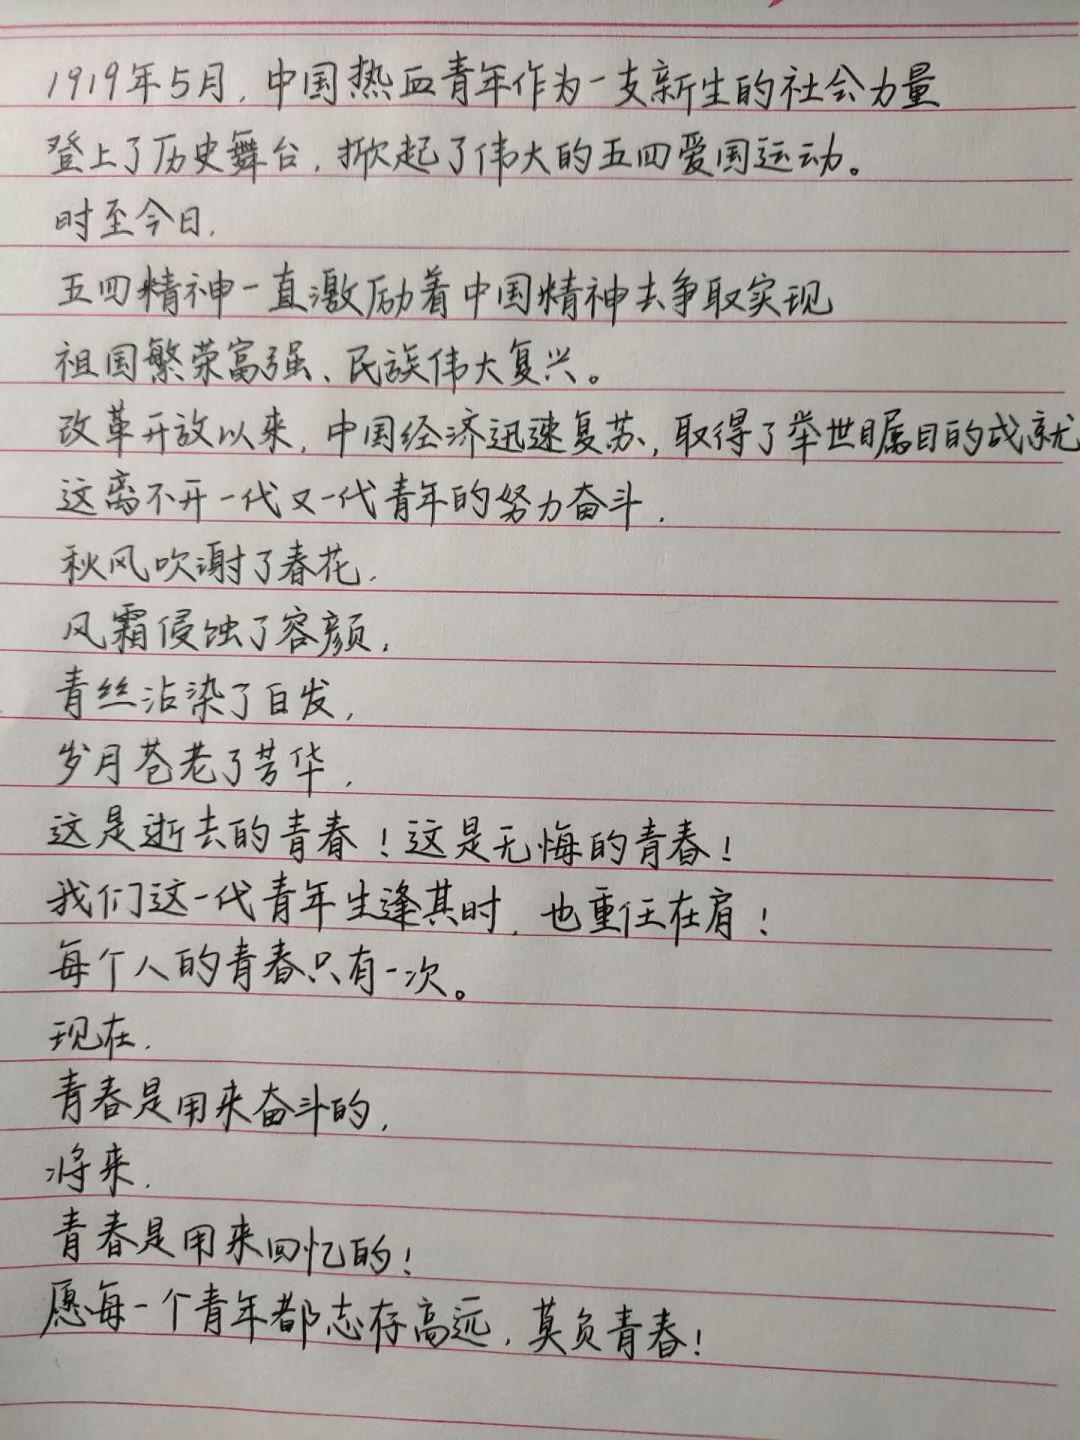 1919年5月，中国热血青年作为一支新生的社会力量
登上了历史舞台，掀起了伟大的五四爱国运动。
时至今日，
五四精神一直激励着中国精神去争取实现
祖国繁荣富强、民族伟大复兴。
改革开放以来，中国经济迅速复苏，取得了举世瞩目的成就
这离不开一代又一代青年的努力奋斗，
秋风吹谢了春花，
风霜侵蚀了容颜，
青丝沾染了白发，
岁月苍老了芳华，
这是逝去的青春！这是无悔的青春！
我们这一代青年生逢其时，也重任在肩！
每个人的青春只有一次。
现在，
青春是用来奋斗的，
将来，
青春是用来回忆的！
愿每一个青年都志存高远，莫负青春！